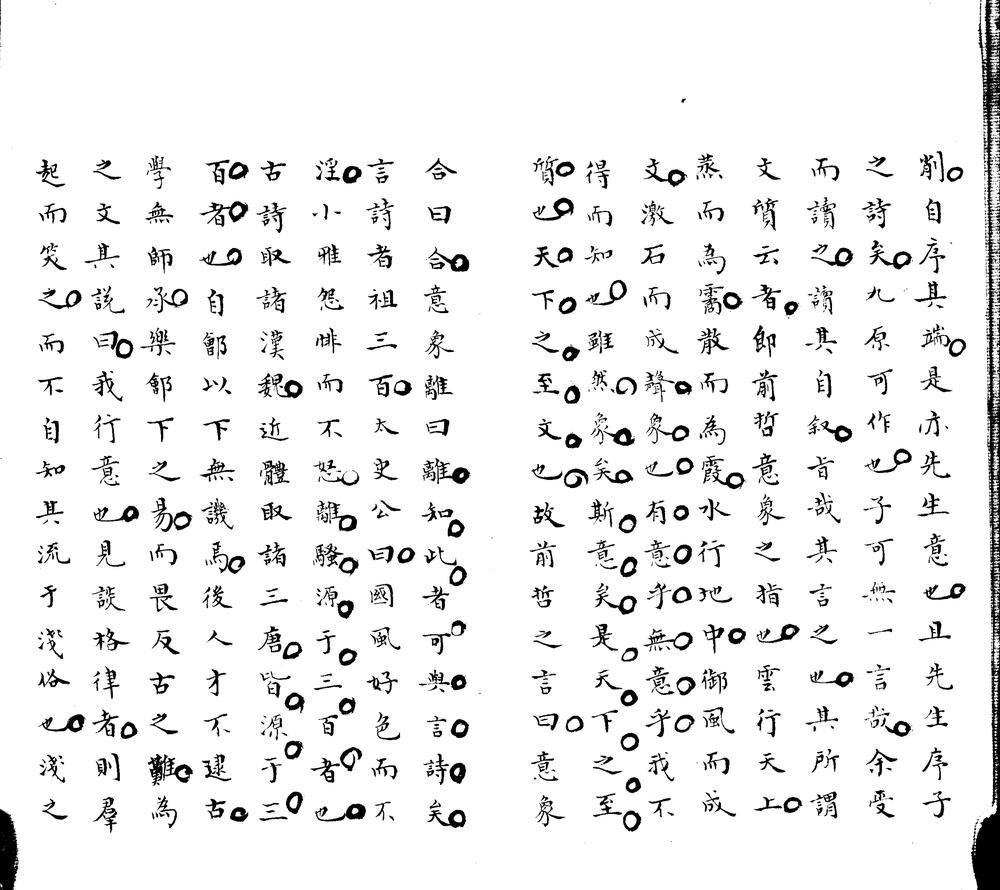 削自序其端是亦先生意也且先生序子
之詩矣九原可作也子可無一言哉余受
而讀之讀其自叙旨哉其言之也其所謂
文質云者卽前哲意象之指也雲行天上
蒸而為霱散而為霞水行地中御風而成
文激石而成聲象也有意乎無意乎我不
得而知也雖然象矣斯意矣是天下之至
質也天下之至文也故前哲之言曰意象
合曰合意象離曰離知此者可與言詩矣
言詩者祖三百太史公曰國風好色而不
淫小雅怨悱而不怒離騷源于三百者也
古詩取諸漢魏近體取諸三唐皆源于三
百者也自鄶以下無譏焉後人才不逮古
學無師承樂鄶下之易而畏反古之難為
之文其說曰我行意也見談格律者則羣
起而笑之而不自知其流于淺俗也淺之